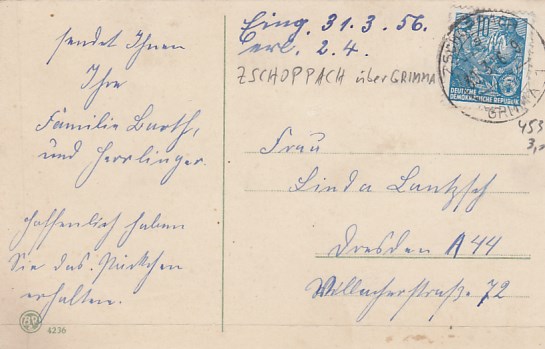 sendet Ihnen
Ihre
Familie Barth,
und Herrlinger.
hoffentlich haben
Sie das Päckchen
erhalten.
4236
Eing. 31.3.56.
erl. 2.4.
ZSCHOPPACH über GRIMMA
DEUTSCHE
DEMOKRATISCHE REPUBLIK
GRIMMA 1
453
Frau
Linda Lantzsch
Dresden A 44
72